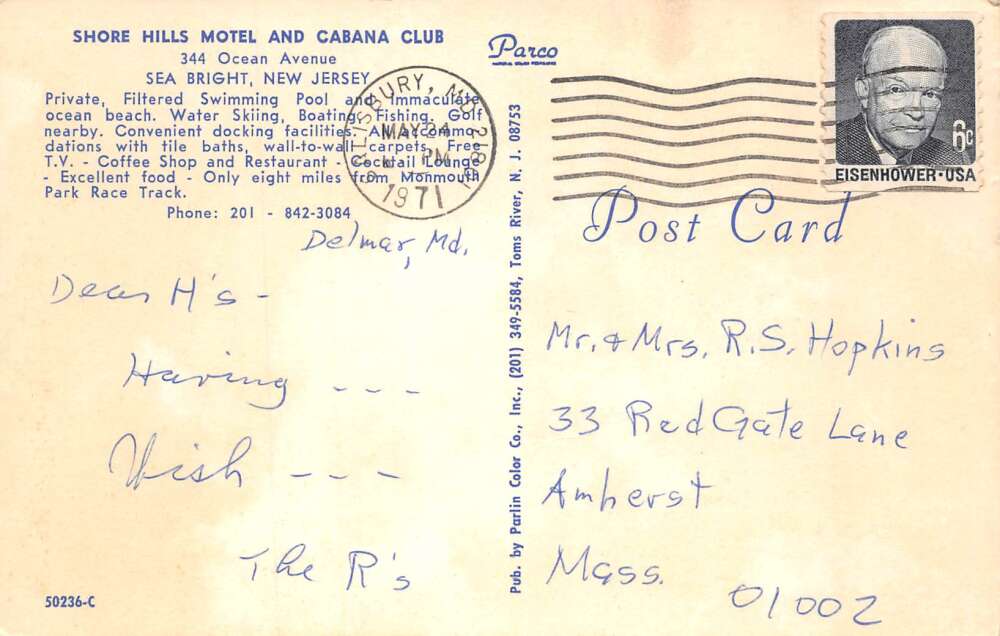 SHORE HILLS MOTEL AND CABANA CLUB
344 Ocean Avenue
SEA BRIGHT, NEW JERSEY
Private, Filtered Swimming Pool and Immaculate
ocean beach. Water Skiing, Boating, Fishing. Golf
nearby. Convenient docking facilities. All accommo-
dations with tile baths, wall-to-wall carpets. Free
T.V. - Coffee Shop and Restaurant - Cocktail Lounge
- Excellent food - Only eight miles from Monmouth
Park Race Track.
Phone: 201 - 842-3084
Delmar, Md.
Dear H's -
Having - - -
Wish - - -
The R's
50236-C
Parco
SALISBURY, MD. 218
MAY 24
PM
1971
Pub. by Parlin Color Co., Inc., (201) 349-5584, Toms River, N. J. 08753
6c
EISENHOWER·USA
Post Card
Mr. & Mrs. R.S. Hopkins
33 Red Gate Lane
Amherst
Mass.
01002